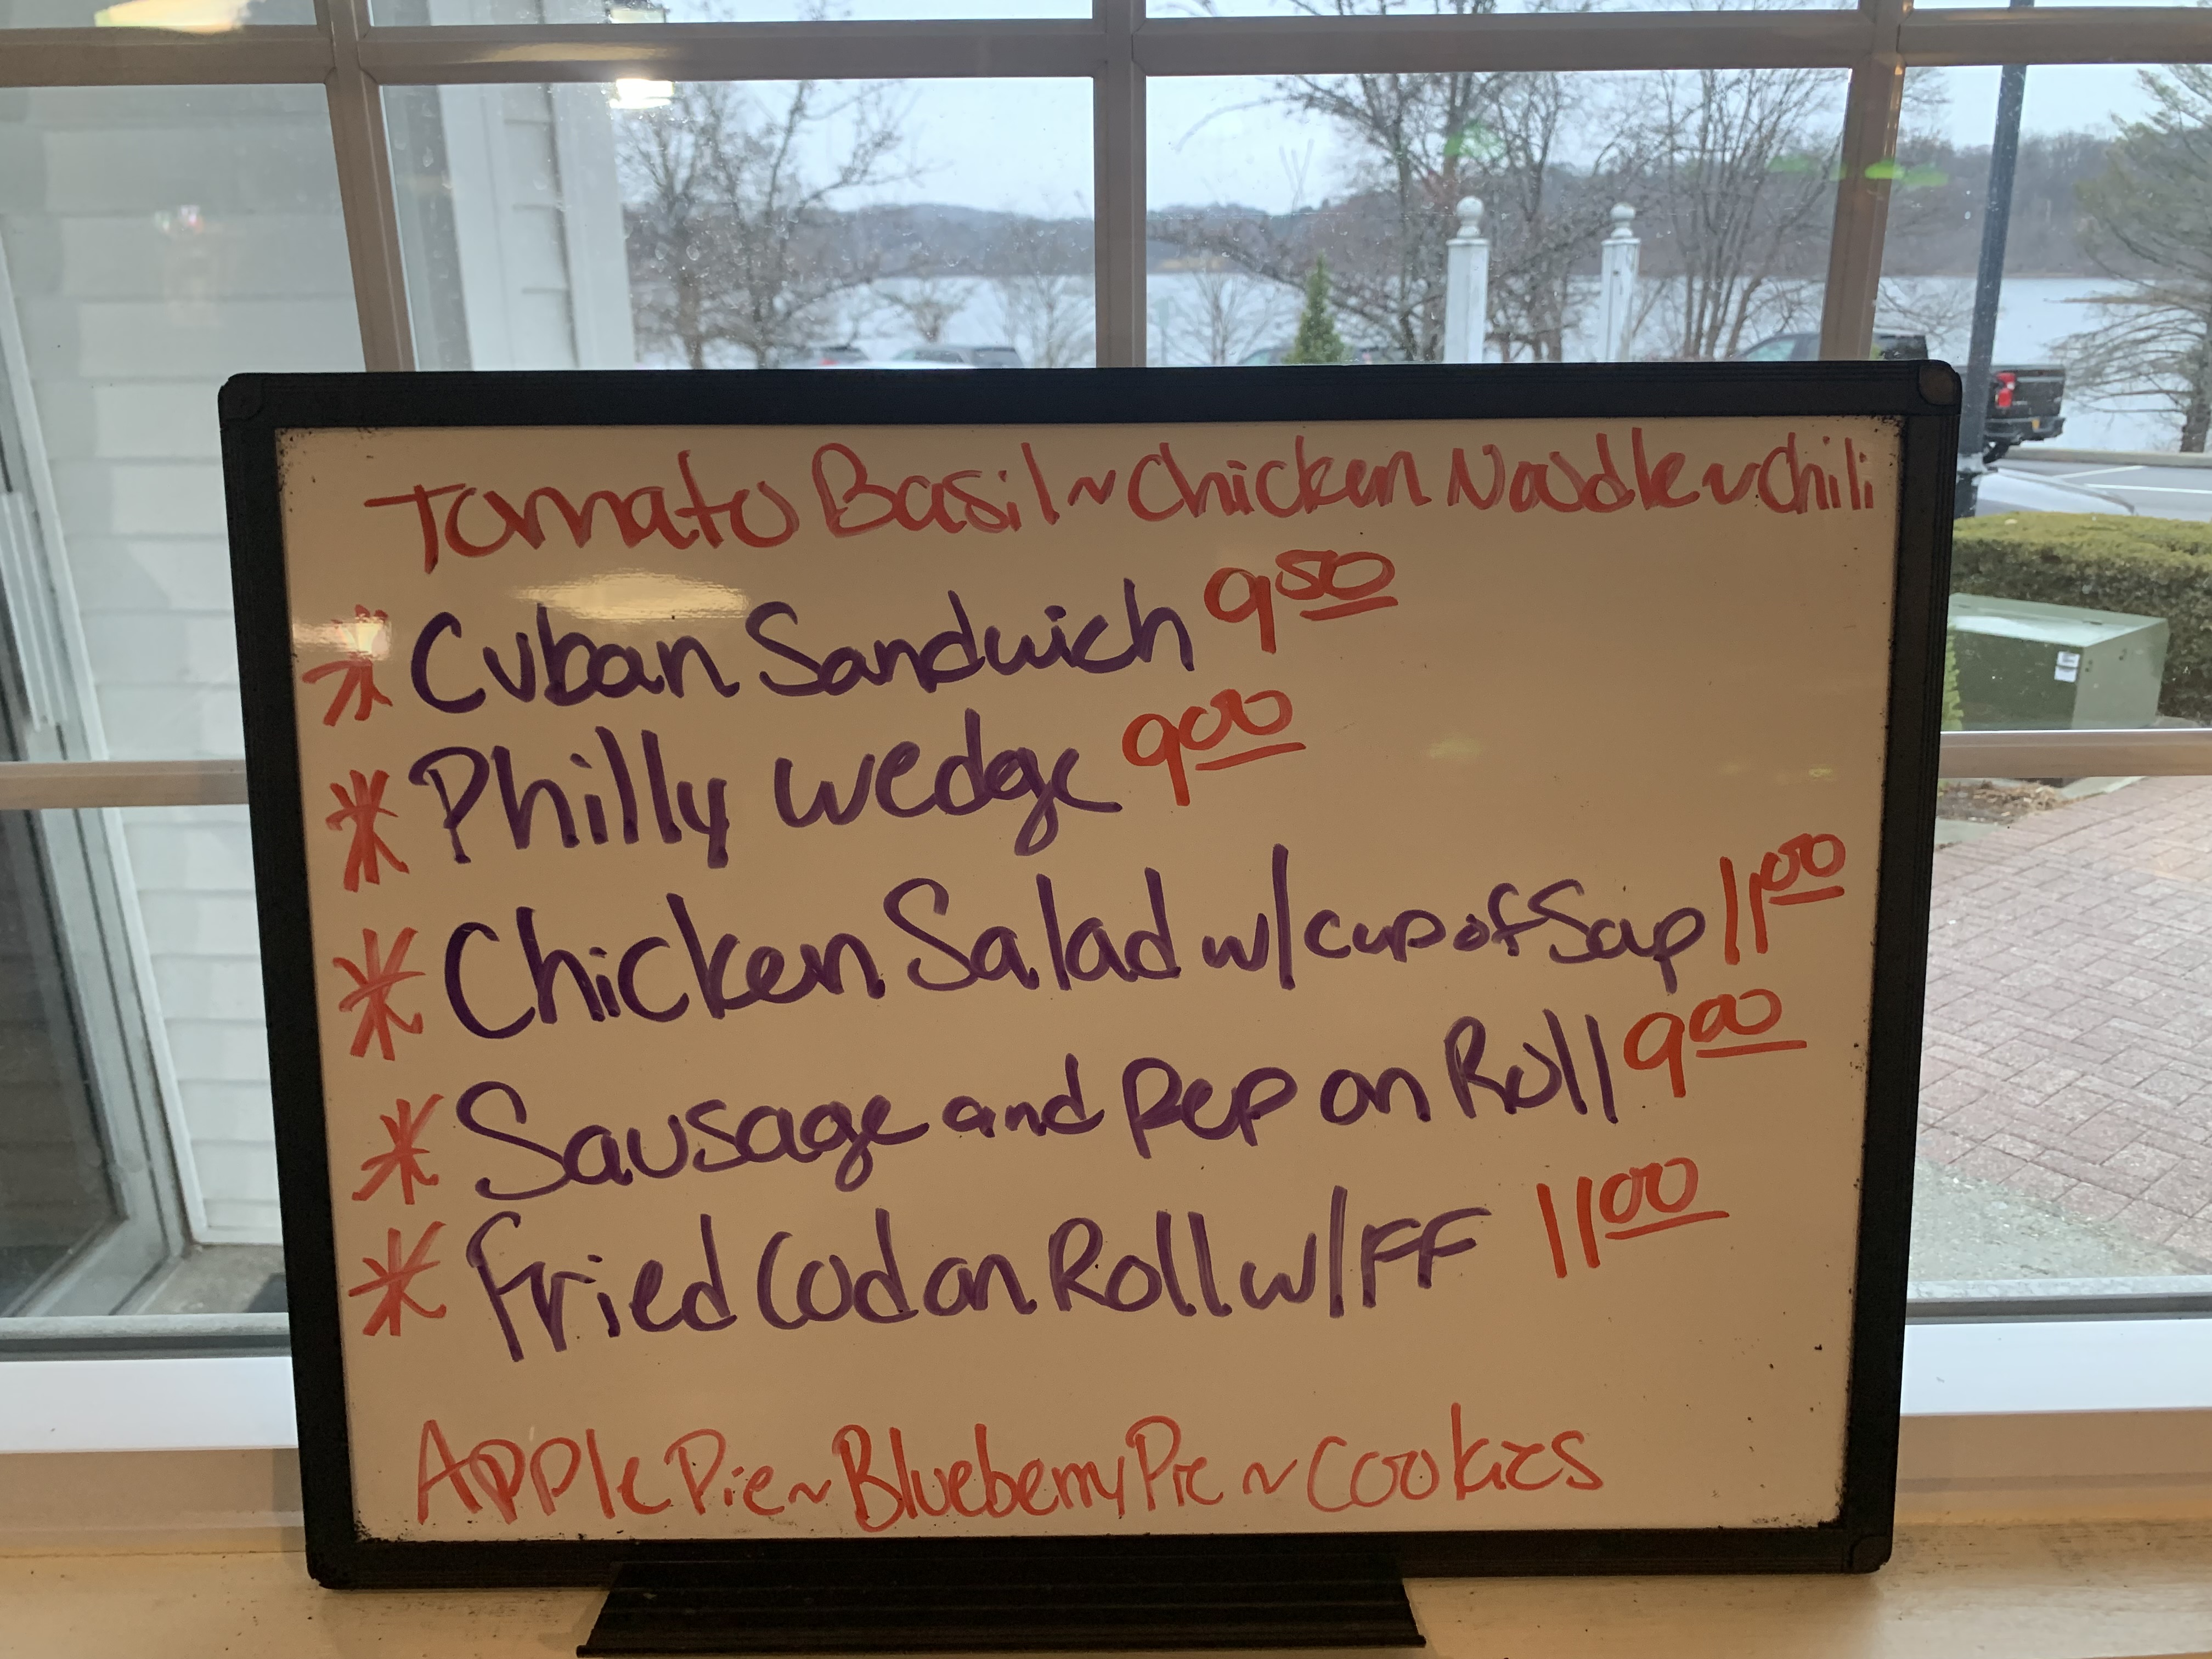 Tomato Basil ~ Chicken Noodle ~ Chili
* Cuban Sandwich 9 50
* Philly wedge 9 00
* Chicken Salad w/ cup of Soup 11 00
* Sausage and pep on Roll 9 00
* Fried Cod on Roll w/ FF 11 00
Apple Pie ~ Blueberry Pie ~ Cookies